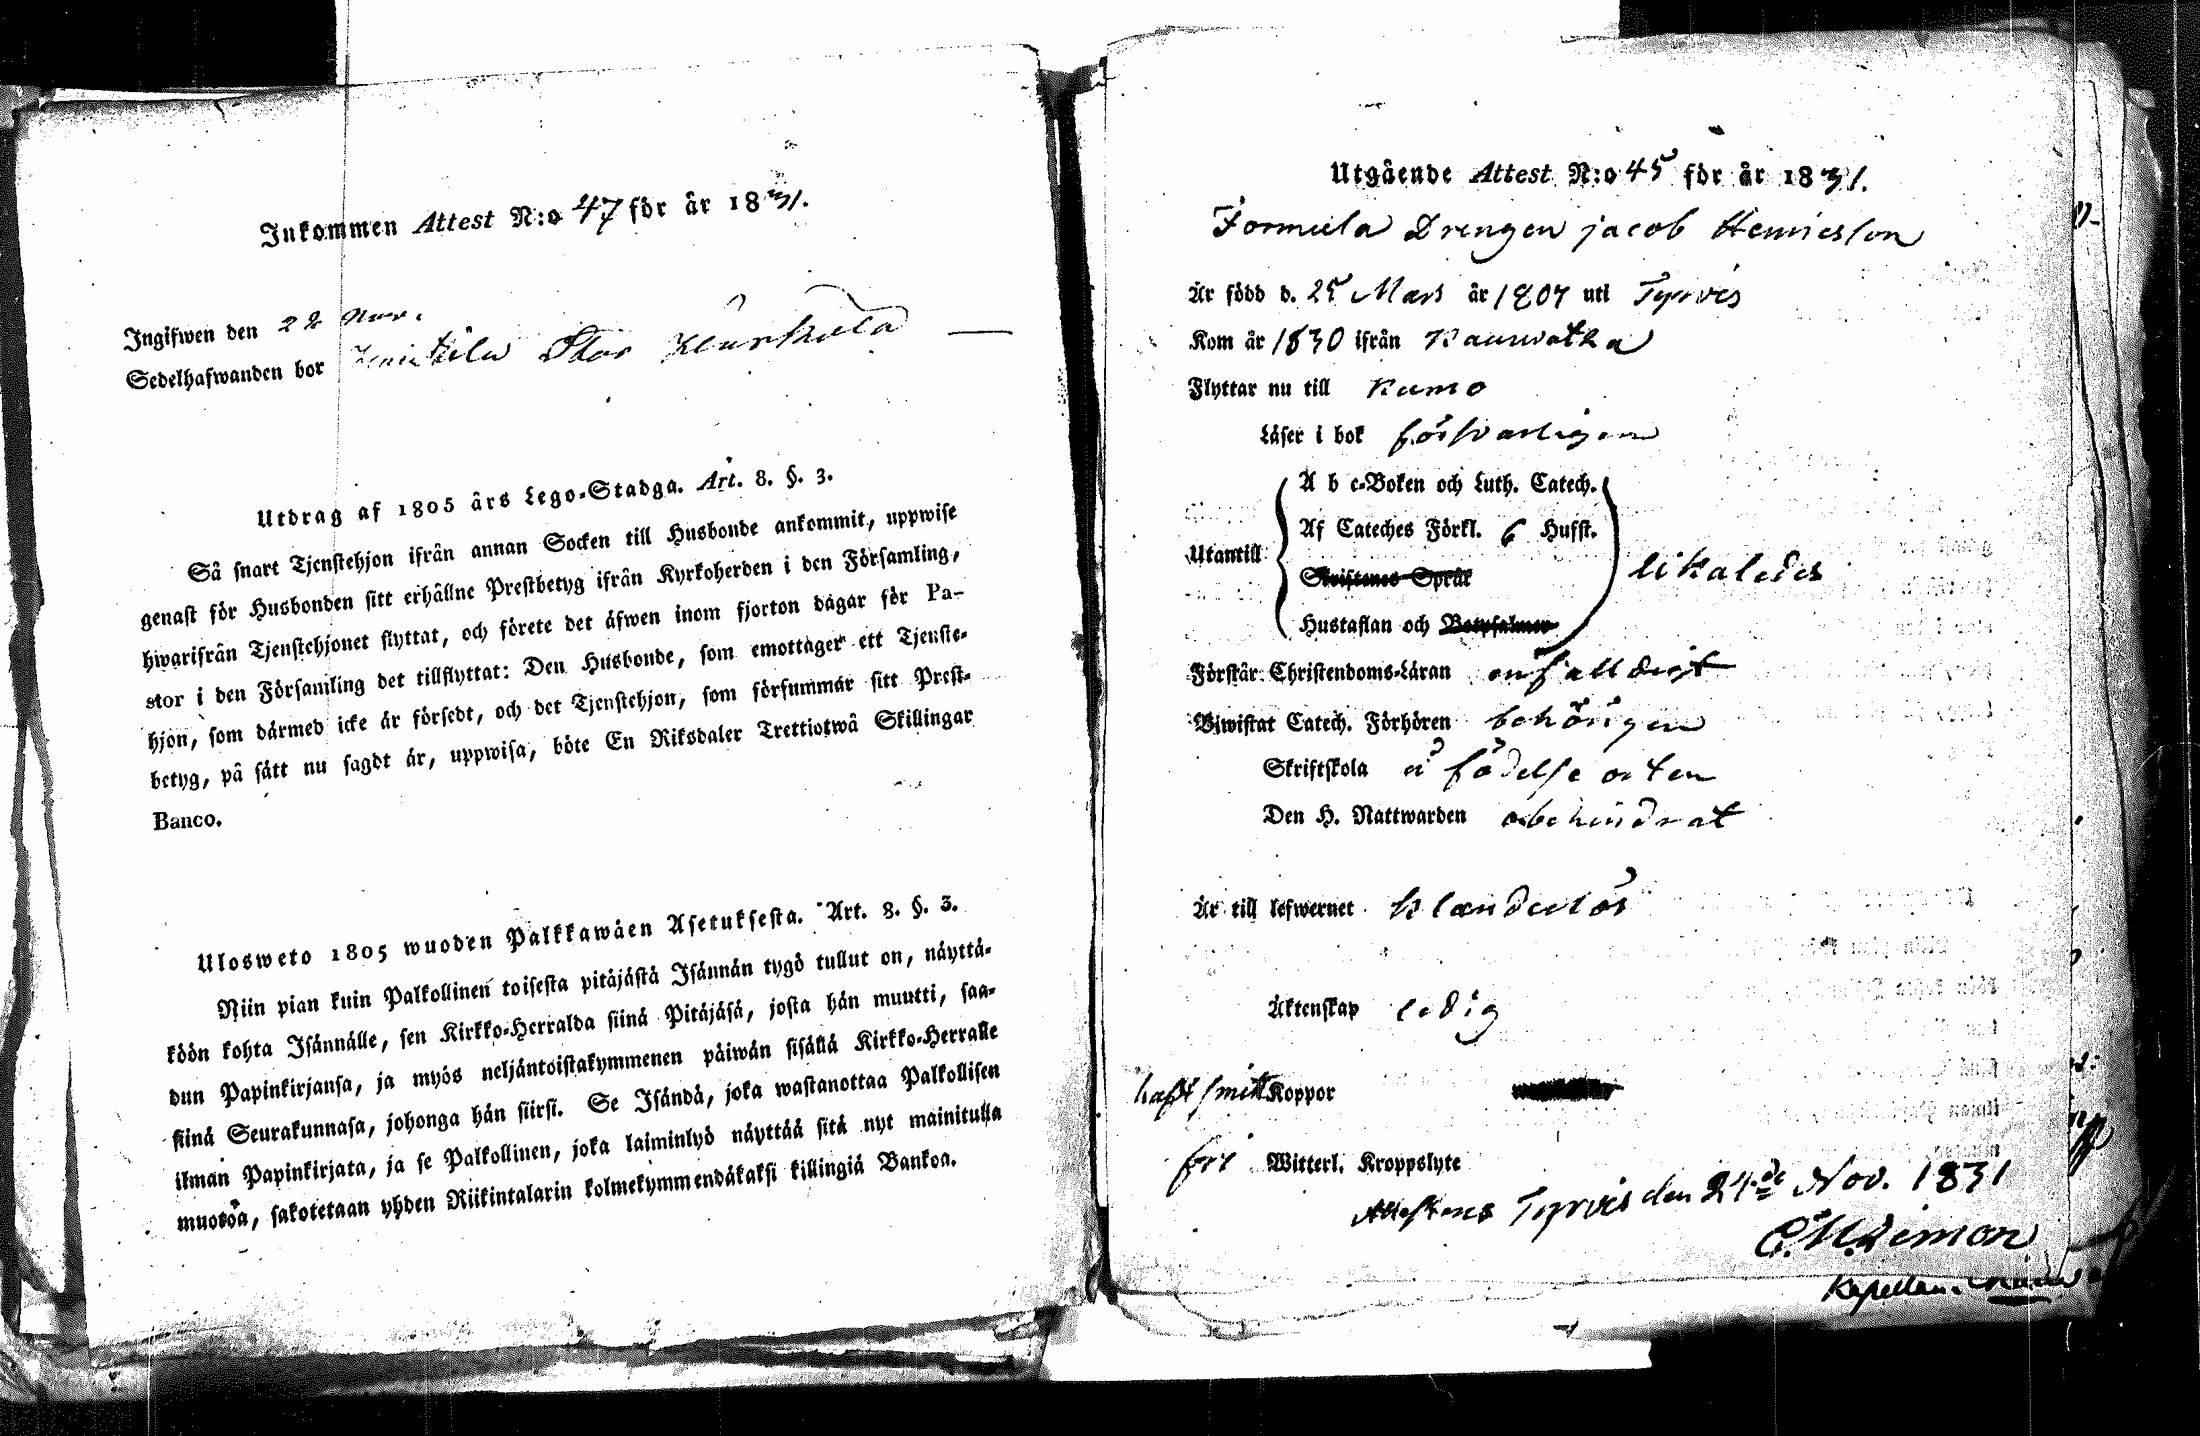 Inkommen Attest N:o 47 för år 1831.
Ingifwen den 22 Nov.
Sedelhafwanden bor Stor
Utdrag af 1805 års Lego-Stadga. Art. 8. §. 3.
Så snart Tjenstehjon ifrån annan Socken till Husbonde ankommit, uppwise
genast för Husbonden sitt erhållne Prestbetyg ifrån Kyrkoherden i den Församling,
hwarifrån Tjenstehjonet flyttat, och förete det äfwen inom fjorton dagar för Pa-
stor i den Församling det tillflyttat: Den Husbonde, som emottager ett Tjenste-
hjon, som därmed icke är försedt, och det Tjenstehjon, som försummar sitt Prest-
betyg, på sätt nu sagdt är, uppwisa, böte En Riksdaler Trettiotwå Skillingar
Banco.
Ulosweto 1805 wuoden Palkkawäen Asetuksesta. Art. 8. §. 3.
Niin pian kuin Palkollinen toisesta pitäjästä Isännän tygö tullut on, näyttä-
köön kohta Isännälle, sen Kirkko-Herralda siinä Pitäjäsä, josta hän muutti, saa-
dun Papinkirjansa, ja myös neljäntoistakymmenen päiwän sisällä Kirkko-Herralle
siinä Seurakunnasa, johonga hän siirsi. Se Isändä, joka wastanottaa Palkollisen
ilman Papinkirjata, ja se Palkollinen, joka laiminlyö näyttää sitä nyt mainitulla
muotoa, sakotetaan yhden Riikintalarin kolmekymmendäkaksi killingiä Bankoa.
Utgående Attest N:o 45 för år 1831.
Formula Drengen jacob Henricsson
Är född d. 25 Mars år 1807 uti Tyrvis
Kom år 1830 ifrån
Flyttar nu till Kumo
Läser i bok försvarligen
A b c-Boken och Luth. Catech.
Af Cateches Förkl. 6 Hufst.
Utantill likaledes
Skriftenes Språk
Hustaflan och Botpsalmer
Förstår Christendoms-Läran enfalldigt
Biwistat Catech. Förhören behörigen
Skriftskola å födelse orten
Den H. Nattwarden obehindrat
Är till lefwernet klanderlös
Äktenskap ledig
haft smitt Koppor
fri Witterl. Kroppslyte
Attesteras Tyrvis den 21de Nov. 1831
Kapellan.